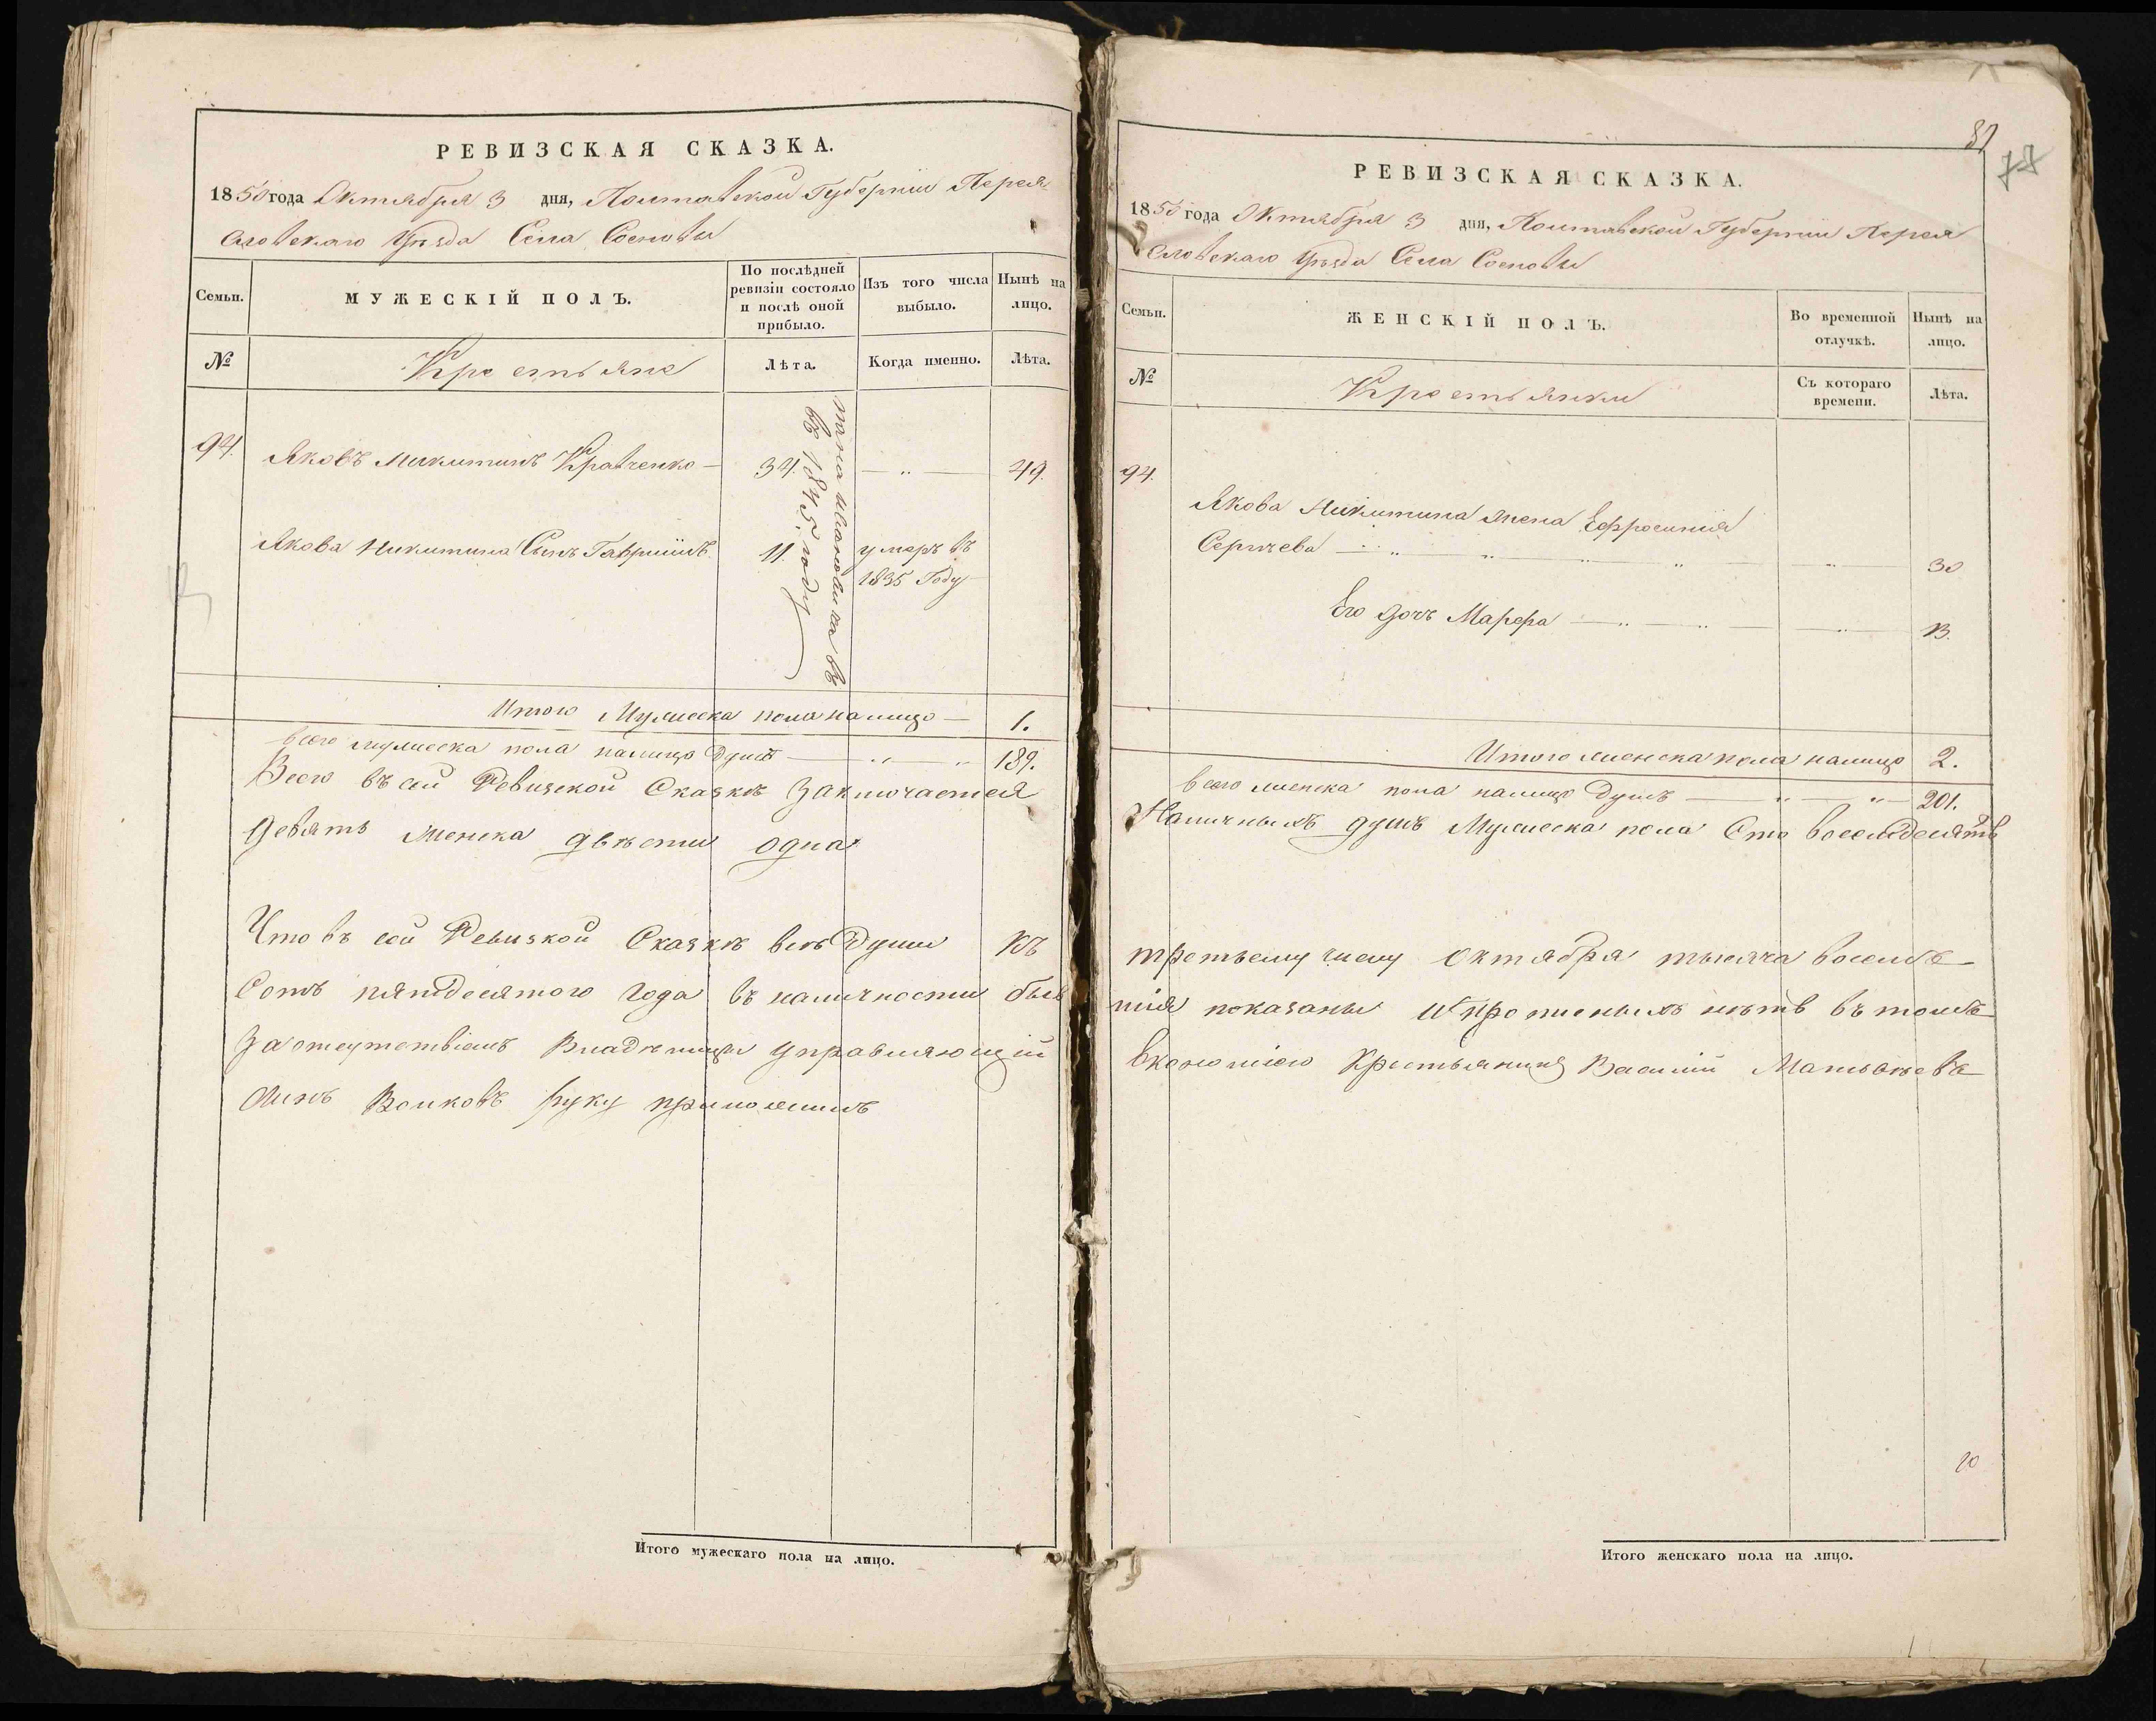 РЕВИЗСКАЯ СКАЗКА.
1850 года Октября 3 дня, Полтавской Губернии Перея
словскаго Уѣзда Села Сосновы
Семьи.
МУЖЕСКІЙ ПОЛЪ.
По послѣдней
ревизіи состояло
и послѣ оной
прибыло.
Изъ того числа
выбыло.
Нынѣ на
лицо.
№
Крестьяне
Лѣта.
Когда именно.
Лѣта.
94. Яковъ Микитинъ Кравченко — 34. — „ — 49.
въ 1845 году
Якова Никитина Сынъ Гавріилъ 11. умеръ въ
1835 Году
Итого Мужеска пола налицо — 1.
Всего мужеска пола налицо Душъ — „ — „ 189.
Всего въ сей Ревизской Сказкѣ Заключается
девять Женска двѣсти одна
Что въ сей Ревизкой Сказкѣ всѣ Души Къ
Сотъ пятдесятого Года въ наличности быв
За отсутствіемъ Владѣлицы Управляющій
Волковъ руку приложилъ
Итого мужескаго пола на лицо.
89
78
РЕВИЗСКАЯ СКАЗКА.
1850 года Октября 3 дня, Полтавской Губерніи Перея
словскаго Уѣзда Села Сосновы
Семьи.
ЖЕНСКІЙ ПОЛЪ.
Во временной
отлучкѣ.
Нынѣ на
лицо.
№
Крестьянки
Съ котораго
времени.
Лѣта.
94.
Якова Никитина жена Ефросинія
Сергѣева — „ — „ — „ — „ — 30
Его дочь Марфа — „ — „ — „ — 13.
Итого женска пола налицо 2.
Всего женска пола налицо Душъ — „ — „ — 201.
Наличныхъ душъ Мужеска пола Сто восемдесятъ
третьему числу Октября тысяча восемъ
шія показаны и прописныхъ нѣтъ въ томъ
Економіею Крестьянинъ Василій
20
Итого женскаго пола на лицо.